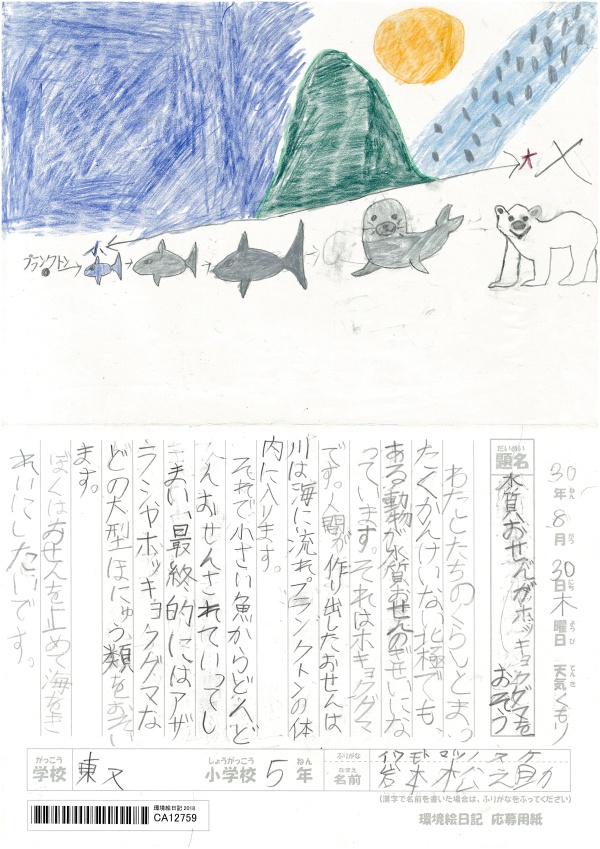 プランクトン
30年8月30日木曜日 天気くもり
ねん がつ にち ようび てんき
だいめい
題名
水質おせんがホッキョクグマを
おそう
わたしたちのくらしとまっ
たくかんけいない北極でも、
ある動物が水質おせんのぎせいにな
っています。それはホキョグマ
です。人間が作り出したおせんは
川は海に流れプランクトンの体
内に入ります。
それで小さい魚からどんど
んおせんされていってし
まい、最終的にはアザ
ラシやホッキョクグマな
どの大型ほにゅう類をおそい
ます。
ぼくはおせんを止めて海をき
れいにしたいです。
がっこう
学校
東又
しょうがっこう
小学校
5
ねん
年
ふりがな
なまえ
名前
イワモトマツノスケ
岩本松之助
(漢字で名前を書いた場合は、ふりがなをふってください)
環境絵日記 2018
CA12759
環境絵日記 応募用紙